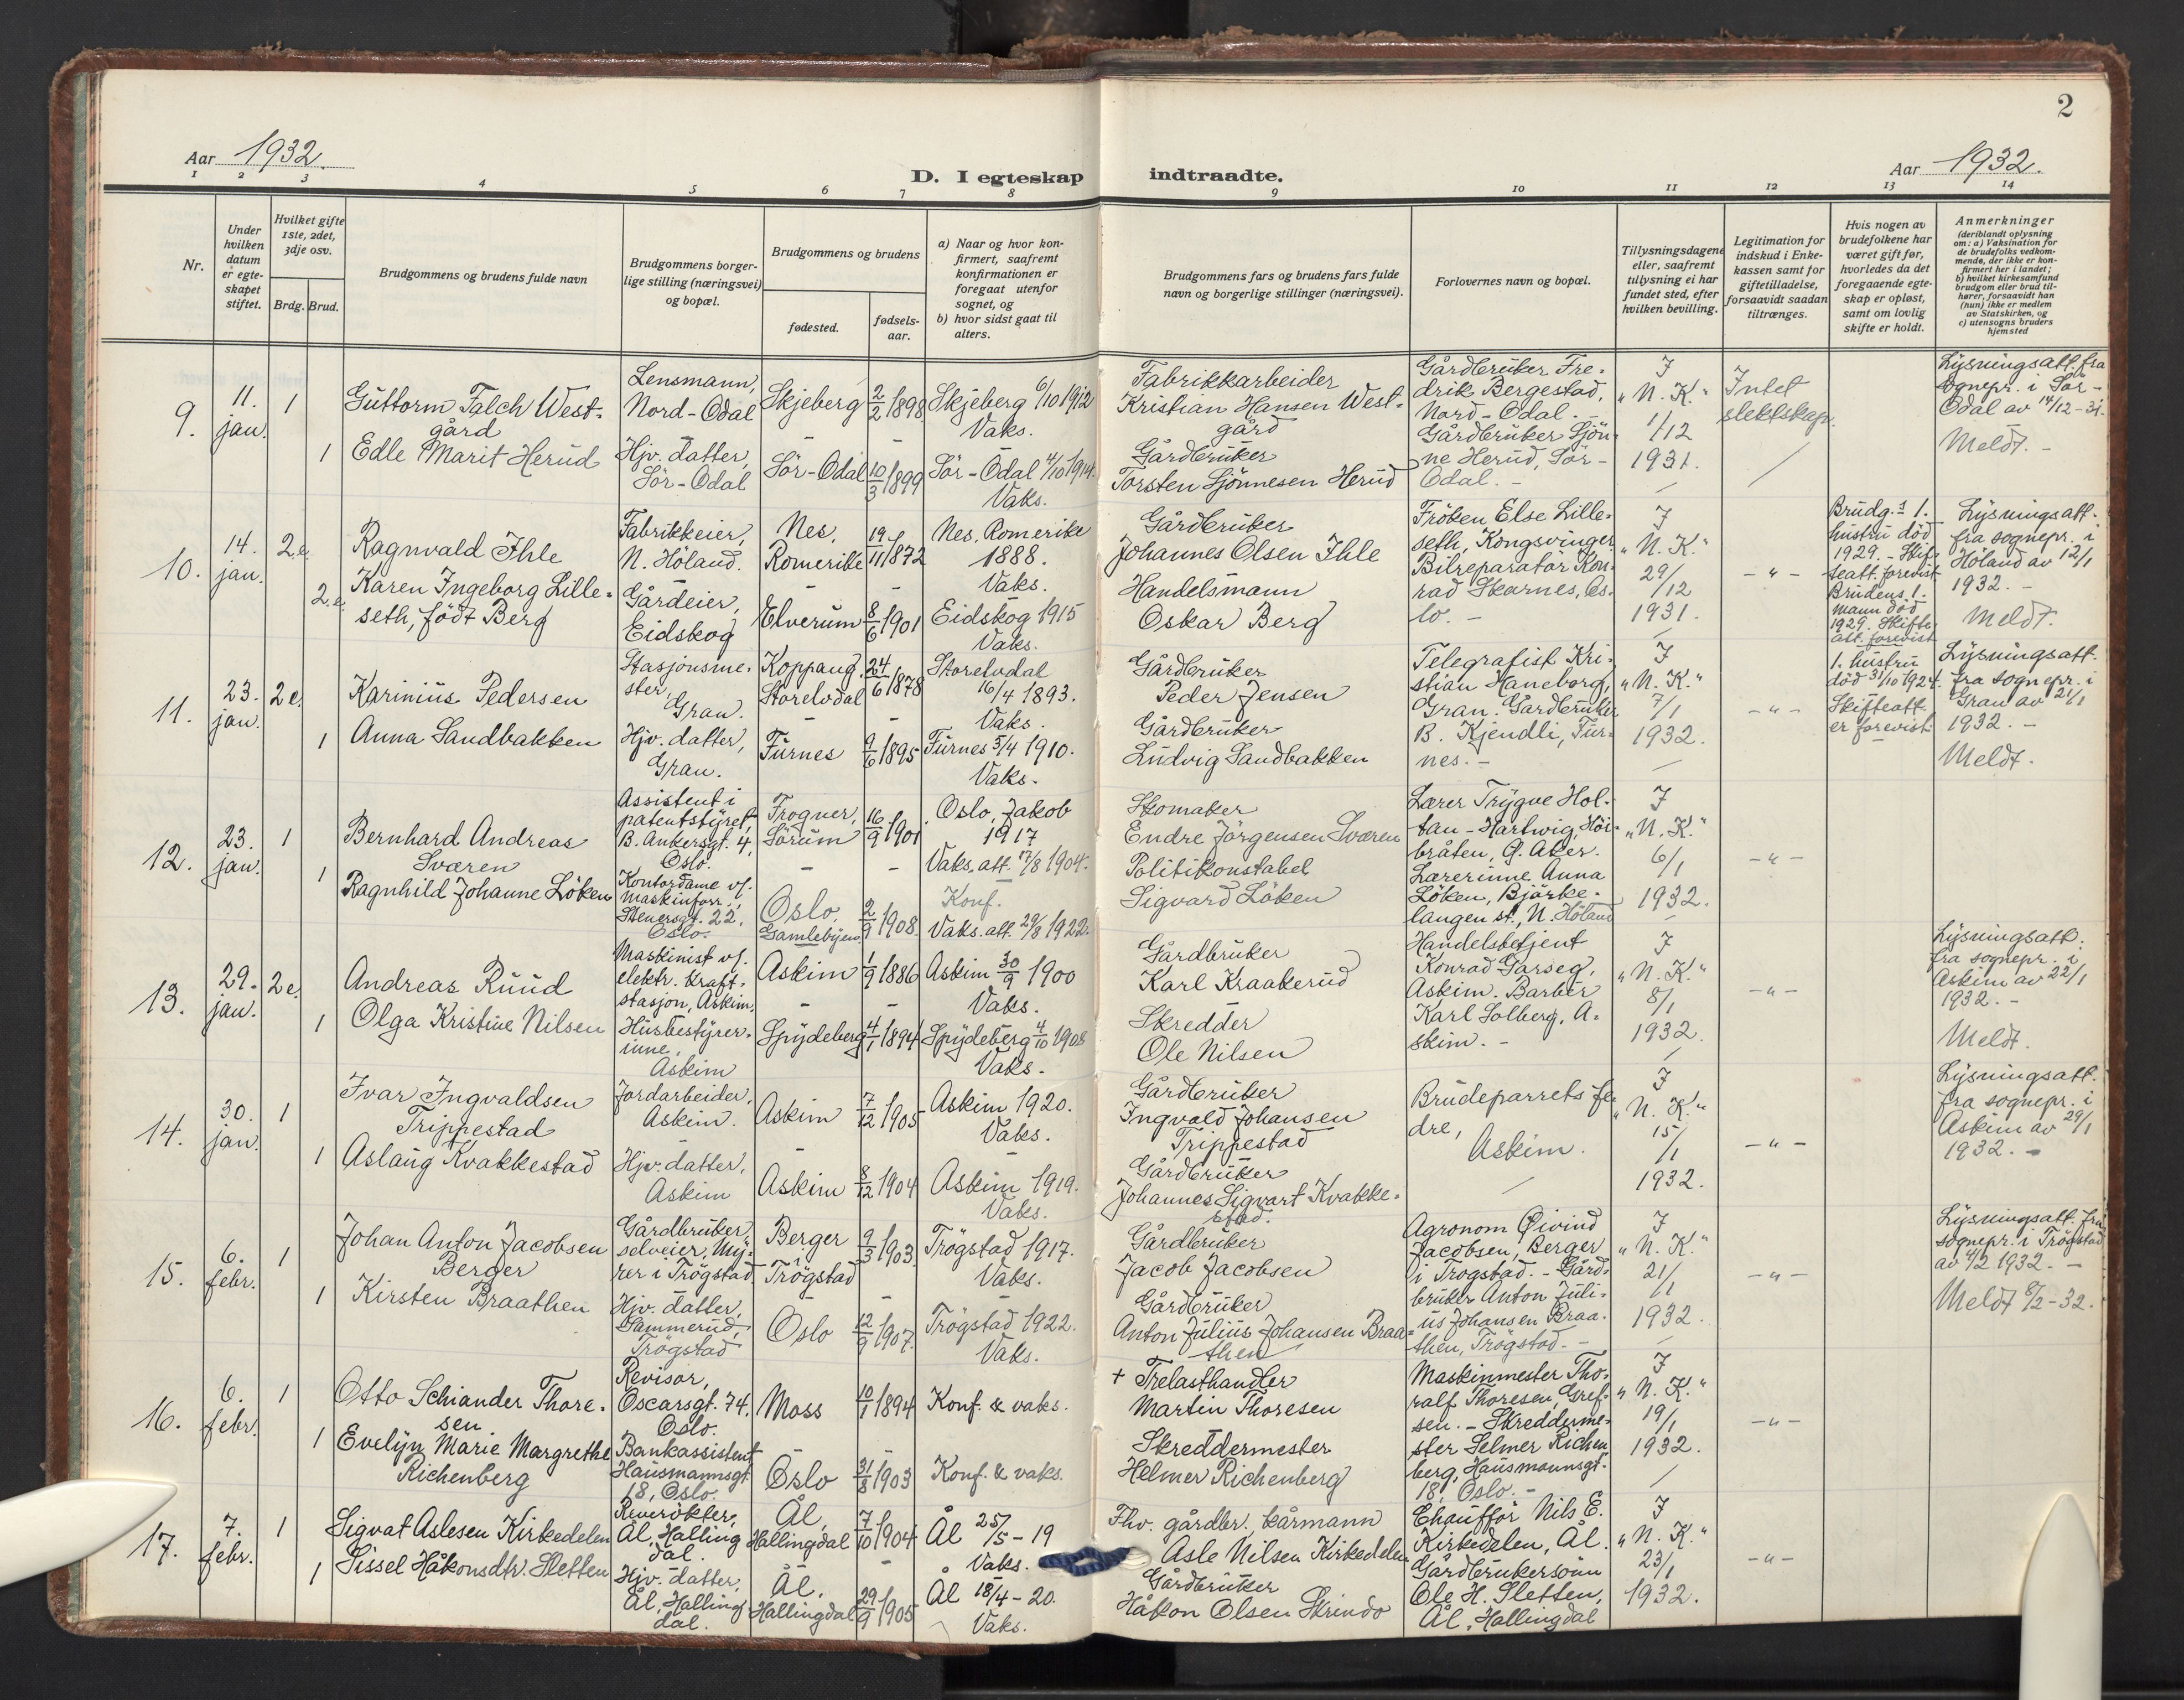 2
Aar 1932.
D. I egteskap indtraadte.
Aar 1932.
1 2 3 4 5 6 7 8 9 10 11 12 13 14
Nr.
Under hvilken datum er egteskapet stiftet.
Hvilket gifte 1ste, 2det, 3dje osv.
Brdg. Brud.
Brudgommens og brudens fulde navn
Brudgommens borgerlige stilling (næringsvei) og bopæl.
Brudgommens og brudens
fødested.
fødselsaar.
a) Naar og hvor konfirmert, saafremt konfirmationen er foregaat utenfor sognet, og
b) hvor sidst gaat til alters.
Brudgommens fars og brudens fars fulde navn og borgerlige stillinger (næringsvei).
Forlovernes navn og bopæl.
Tillysningsdagene eller, saafremt tillysning ei har fundet sted, efter hvilken bevilling.
Legitimation for indskud i Enkekassen samt for giftetilladelse, forsaavidt saadan tiltrænges.
Hvis nogen av brudefolkene har været gift før, hvorledes da det foregaaende egteskap er opløst, samt om lovlig skifte er holdt.
Anmerkninger
(deriblandt oplysning om: a) Vaksination for de brudefolks vedkommende, der ikke er konfirmert her i landet; b) hvilket kirkesamfund brudgom eller brud tilhører, forsaavidt han (hun) ikke er medlem av Statskirken, og c) utensogns bruders hjemsted
9.
11. jan.
1
Guttorm Falch Westgård
Lensmann, Nord-Odal
Skjeberg
2/2 1898
Skjeberg 6/10 1912
Vaks.
Fabrikkarbeider
Kristian Hansen Westgård
Gårdbruker Fredrik Bergestad, Nord-Odal. -
Gårdbruker Sjønne Herud, Sør-Odal. -
I "N. K." 1/12 1931.
Intet slektskap.
Lysningsatt. fra sognepr. i Sør-Odal av 14/12-31.
Meldt. -
1
Edle Marit Herud
Hjv. datter, Sör-Odal
Sör-Odal
10/3 1899
Sör-Odal 4/10 1914.
Vaks.
Gårdbruker
Torsten Sjönnesen Herud
10.
14. jan.
2.e.
Ragnvald Ihle
Fabrikkeier, N. Höland.
Nes, Romerike
19/11 1872
Nes, Romerike 1888.
Vaks.
Gårdbruker
Johannes Olsen Ihle
Fröken Else Lilleseth, Kongsvinger
Bilreparatör Konrad Skarnes, Oslo. -
I "N. K." 29/12 1931.
- " -
Brudg.s 1. hustru död 1929. - Skifteatt. forevist
Brudens 1. mann död 1929. Skifteatt. forevist
Lysningsatt. fra sognepr. i Höland av 12/1 1932. -
Meldt.
2.e.
Karen Ingeborg Lilleseth, födt Berg
Gårdeier, Eidskog
Elverum
8/6 1901
Eidskog 1915
Vaks.
Handelsmann
Oskar Berg
11.
23. jan.
2 e.
Karinius Pedersen
Stasjonsmester, Gran.
Koppang, Storelvdal
24/6 1878
Storelvdal 16/4 1893.
Vaks.
Gårdbruker
Peder Jensen
Telegrafist Kristian Haneborg, Gran. Gårdbruker B. Kjendli, Furnes. -
I "N. K." 7/1 1932.
- " -
1. hustru död 31/10 1924. Skifteatt er forevist
Lysningsatt. fra sognepr. i Gran av 21/1 1932. -
Meldt.
1
Anna Sandbakken
Hjv. datter, Gran.
Furnes
9/6 1895
Furnes 5/4 1910.
Vaks.
Gårdbruker
Ludvig Sandbakken
12.
23. jan.
1
Bernhard Andreas Sværen
Assistent i patentstyret, B. Ankersgt. 4, Oslo.
Frogner, Sörum
16/9 1901
Oslo, Jakob 1917
Vaks. att. 17/8 1904.
Skomaker
Endre Jörgensen Sværen
Lærer Trygve Holtan-Hartwig, Höibråten, Ø. Aker.
Lærerinne Anna Löken, Bjørkelangen st., N. Höland
I "N. K." 6/1 1932.
- " -
1
Ragnhild Johanne Löken
Kontordame v/. Maskinforr., Stenersgt. 22, Oslo.
Oslo, Gamlebyen
2/9 1908.
Konf.
Vaks. att. 29/8 1922.
Politikonstabel
Sigvard Löken
13.
29. jan.
2 e.
Andreas Ruud
Maskinist v/. elektr. Kraftstasjon, Askim.
Askim
1/9 1886
Askim 30/9 1900
Vaks.
Gårdbruker
Karl Kraakerud
Handelsbetjent Konrad Garseg, Askim. Barber Karl Solberg, Askim. -
I "N. K." 8/1 1932.
- " -
Lysningsatt. fra sognepr. i Askim av 22/1 1932. -
Meldt.
1
Olga Kristine Nilsen
Husbestyrerinne, Askim
Spydeberg
4/1 1894
Spydeberg 4/10 1908
Vaks.
Skredder
Ole Nilsen
14.
30. jan.
1
Ivar Ingvaldsen Trippestad
Jordarbeider, Askim.
Askim
7/12 1905
Askim 1920.
Vaks.
Gårdbruker
Ingvald Johansen Trippestad
Brudeparrets fedre, Askim.
I "N. K." 15/1 1932.
- " -
Lysningsatt. fra sognepr. i Askim av 29/1 1932. -
1
Aslaug Kvakkestad
Hjv. datter, Askim
Askim
8/12 1904
Askim 1919.
Vaks.
Gårdbruker
Johannes Sigvart Kvakkestad.
15.
6. febr.
1
Johan Anton Jacobsen Berger
Gårdbruker, selveier, Myrer i Trögstad
Berger i Trögstad
9/3 1903
Trögstad 1917.
Vaks.
Gårdbruker
Jacob Jacobsen
Agronom Øivind Jacobsen, Berger i Trogstad. - Gårdbruker Anton Julius Johansen Braathen, Trögstad. -
I "N. K." 21/1 1932.
- " -
Lysningsatt. fra sognepr. i Trögstad av 4/2 1932. -
Meldt 8/2-32.
1
Kirsten Braathen
Hjv. datter, Sammerud, Trögstad
Oslo
12/9 1907.
Trögstad 1922.
Vaks.
Gårdbruker
Anton Julius Johansen Braathen
16.
6. febr.
1
Otto Schiander Thoresen
Revisor, Oscarsgt. 74, Oslo.
Moss
10/1 1894
Konf. & vaks.
+ Trelasthandler
Martin Thoresen
Maskinmester Thoralf Thoresen, Grefsen. - Skreddermester Selmer Richenberg, Hausmannsgt. 18, Oslo. -
I "N. K." 19/1 1932.
- " -
1
Evelyn Marie Margrethe Richenberg
Bankassistent Hausmannsgt. 18, Oslo.
Oslo
31/8 1903
Konf. & vaks.
Skreddermester
Helmer Richenberg
17.
7. febr.
1
Sigvat Aslesen Kirkedelen
Reverökter, Ål, Hallingdal.
Ål, Hallingdal
7/10 1904
Ål 25/5-19
Vaks.
Fhv. gårdbr., kårmann
Asle Nilsen Kirkedelen
Chaufför Nils E. Kirkedelen, Ål.
Gårdbrukersönn Ole H. Sletten, Ål, Hallingdal
I "N. K." 23/1 1932.
- " -
1
Sissel Håkonsdtr. Sletten
Hjv. datter, Ål, Hallingdal.
Ål, Hallingdal
29/9 1905
Ål 18/4-20.
Vaks.
Gårdbruker
Håkon Olsen Skrindo